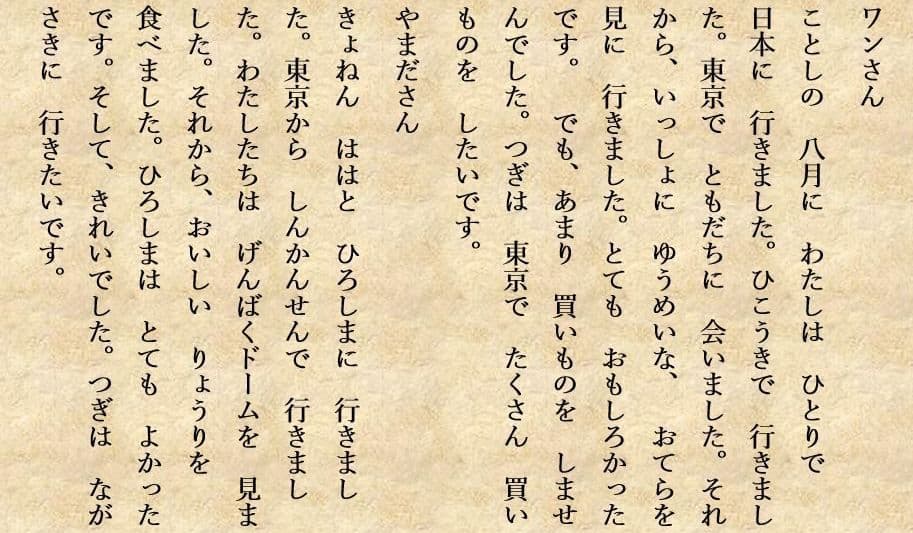 ワンさん
ことしの　八月に　わたしは　ひとりで
日本に　行きました。ひこうきで　行きまし
た。東京で　ともだちに　会いました。それ
から、いっしょに　ゆうめいな、　おてらを
見に　行きました。とても　おもしろかった
です。　でも、あまり　買いものを　しませ
んでした。つぎは　東京で　たくさん　買い
ものを　したいです。
やまださん
きょねん　ははと　ひろしまに　行きまし
た。東京から　しんかんせんで　行きまし
た。わたしたちは　げんばくドームを　見ま
した。それから、おいしい　りょうりを
食べました。ひろしまは　とても　よかった
です。そして、きれいでした。つぎは　なが
さきに　行きたいです。